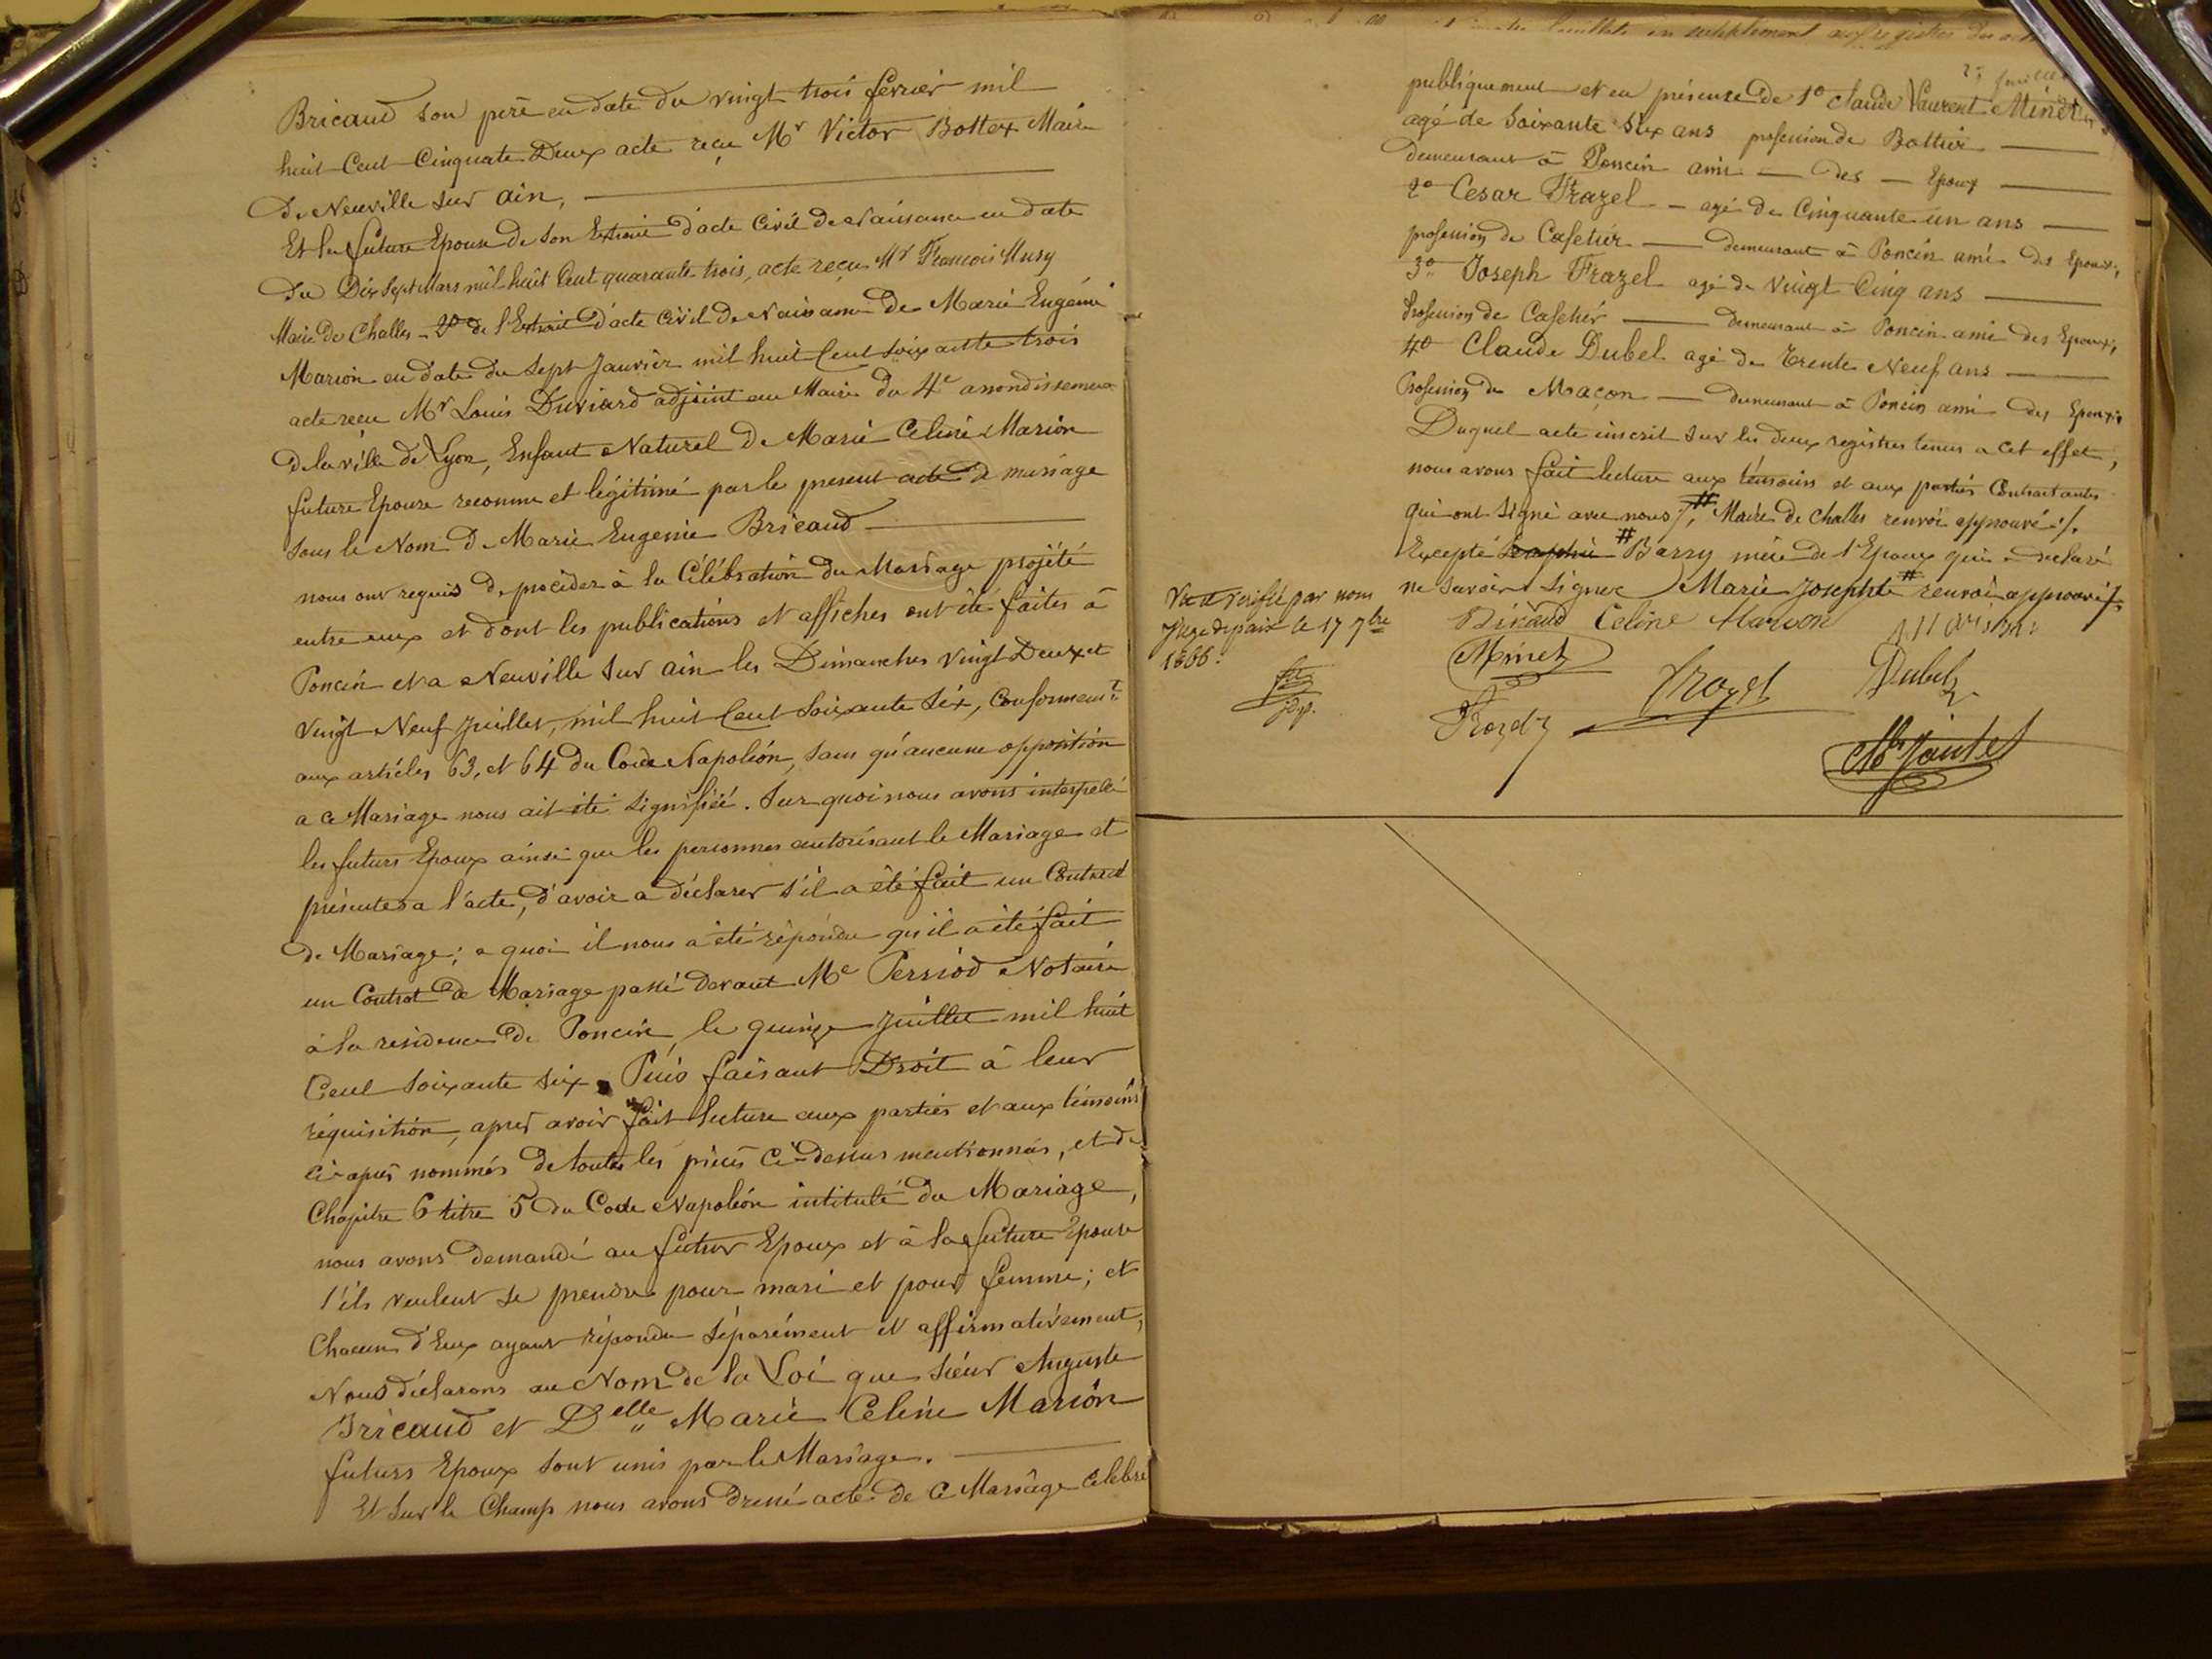 Bricaud son père en date du vingt trois février mil
huit Cent Cinquate Deux acte reçu Mr Victor Bottex Maire
de Neuville sur ain,
Et la future Epouse de son Extrait d'acte Civil de Naissance en date
du Dix Sept Mars mil huit Cent quarante trois, acte reçu Mr François Musy
Maire de Challes - 2º de l'Extrait d'acte Civil de Naissance de Marie Eugénie
Marion en date du Sept Janvier mil huit Cent soixante trois
acte reçu Mr Louis Duviard adjoint au Maire du 4e arrondissement
de la ville de Lyon, Enfant Naturel de Marie Celine Marion
future Epouse reconnu et légitimé par le present acte de mariage
sous le Nom de Marie Eugenie Bricaud
nous ont requis de procéder à la Célébration du Mariage projété
entre eux et dont les publications et affiches ont été faites à
Poncin et a Neuville sur ain les Dimanches vingt Deux et
vingt Neuf Juillet, mil huit Cent Soixante Six, Conformemt
aux articles 63, et 64 du Code Napoléon, sans qu'aucune opposition
a ce Mariage nous ait été signifiée. Sur quoi nous avons interpellé
les futurs Epoux ainsi que les personnes autorisant le Mariage et
présentes a l'acte, d'avoir a déclarer s'il a été fait un Contrat
de Mariage; a quoi il nous a été répondu qu'il a été fait
un Contrat de Mariage passé devant Me Perriod Notaire
à la residence de Poncin, le quinze Juillet mil huit
Cent soixante six. Puis faisant Droit à leur
réquisition, apres avoir fait lecture aux parties et aux témoins
ci-après nommés de toutes les pièces Ci-dessus mentionnées, et du
Chapitre 6 titre 5 du Code Napoléon intitulé du Mariage,
nous avons demandé au futur Epoux et à la future Epouse
s'ils veulent se prendre pour mari et pour femme; et
Chacun d'Eux ayant répondu séparément et affirmativement,
Nous déclarons au Nom de la Loi que sieur Auguste
Bricaud et Delle Marie Celine Marion
futurs Epoux sont unis par le Mariage.
Et sur le Champ nous avons dressé acte de ce Mariage celebré
feuillets en supplément aux registres des
publiquement et en présence de 1º Claude Laurent Minet
agé de Soixante Six ans profession de Bottier
demeurant à Poncin ami des Epoux
2º Cesar Frazel agé de Cinquante un ans
profession de Cafetier demeurant à Poncin ami des Epoux,
3º Joseph Frazel agé de vingt Cinq ans
Profession de Cafetier demeurant à Poncin ami des Epoux,
4º Claude Dubel agé de Trente Neuf ans
Profession de Maçon demeurant à Poncin ami des Epoux,
Duquel acte inscrit sur les deux registres tenus a cet effet,
nous avons fait lecture aux témoins et aux parties Contractantes
qui ont signé avec nous #, Maire de Challes renvoi approuvé ./.
Excepté # Barry mère de l'Epoux qui a declaré
ne savoir signer Marie Josephte # renvoi approuvé ./.
Vu et vérifié par nous
Juge de paix le 17 7bre
1866.
jdp.
Bricaud Celine Marion
Minet
Frazel
Dubel
Frazel